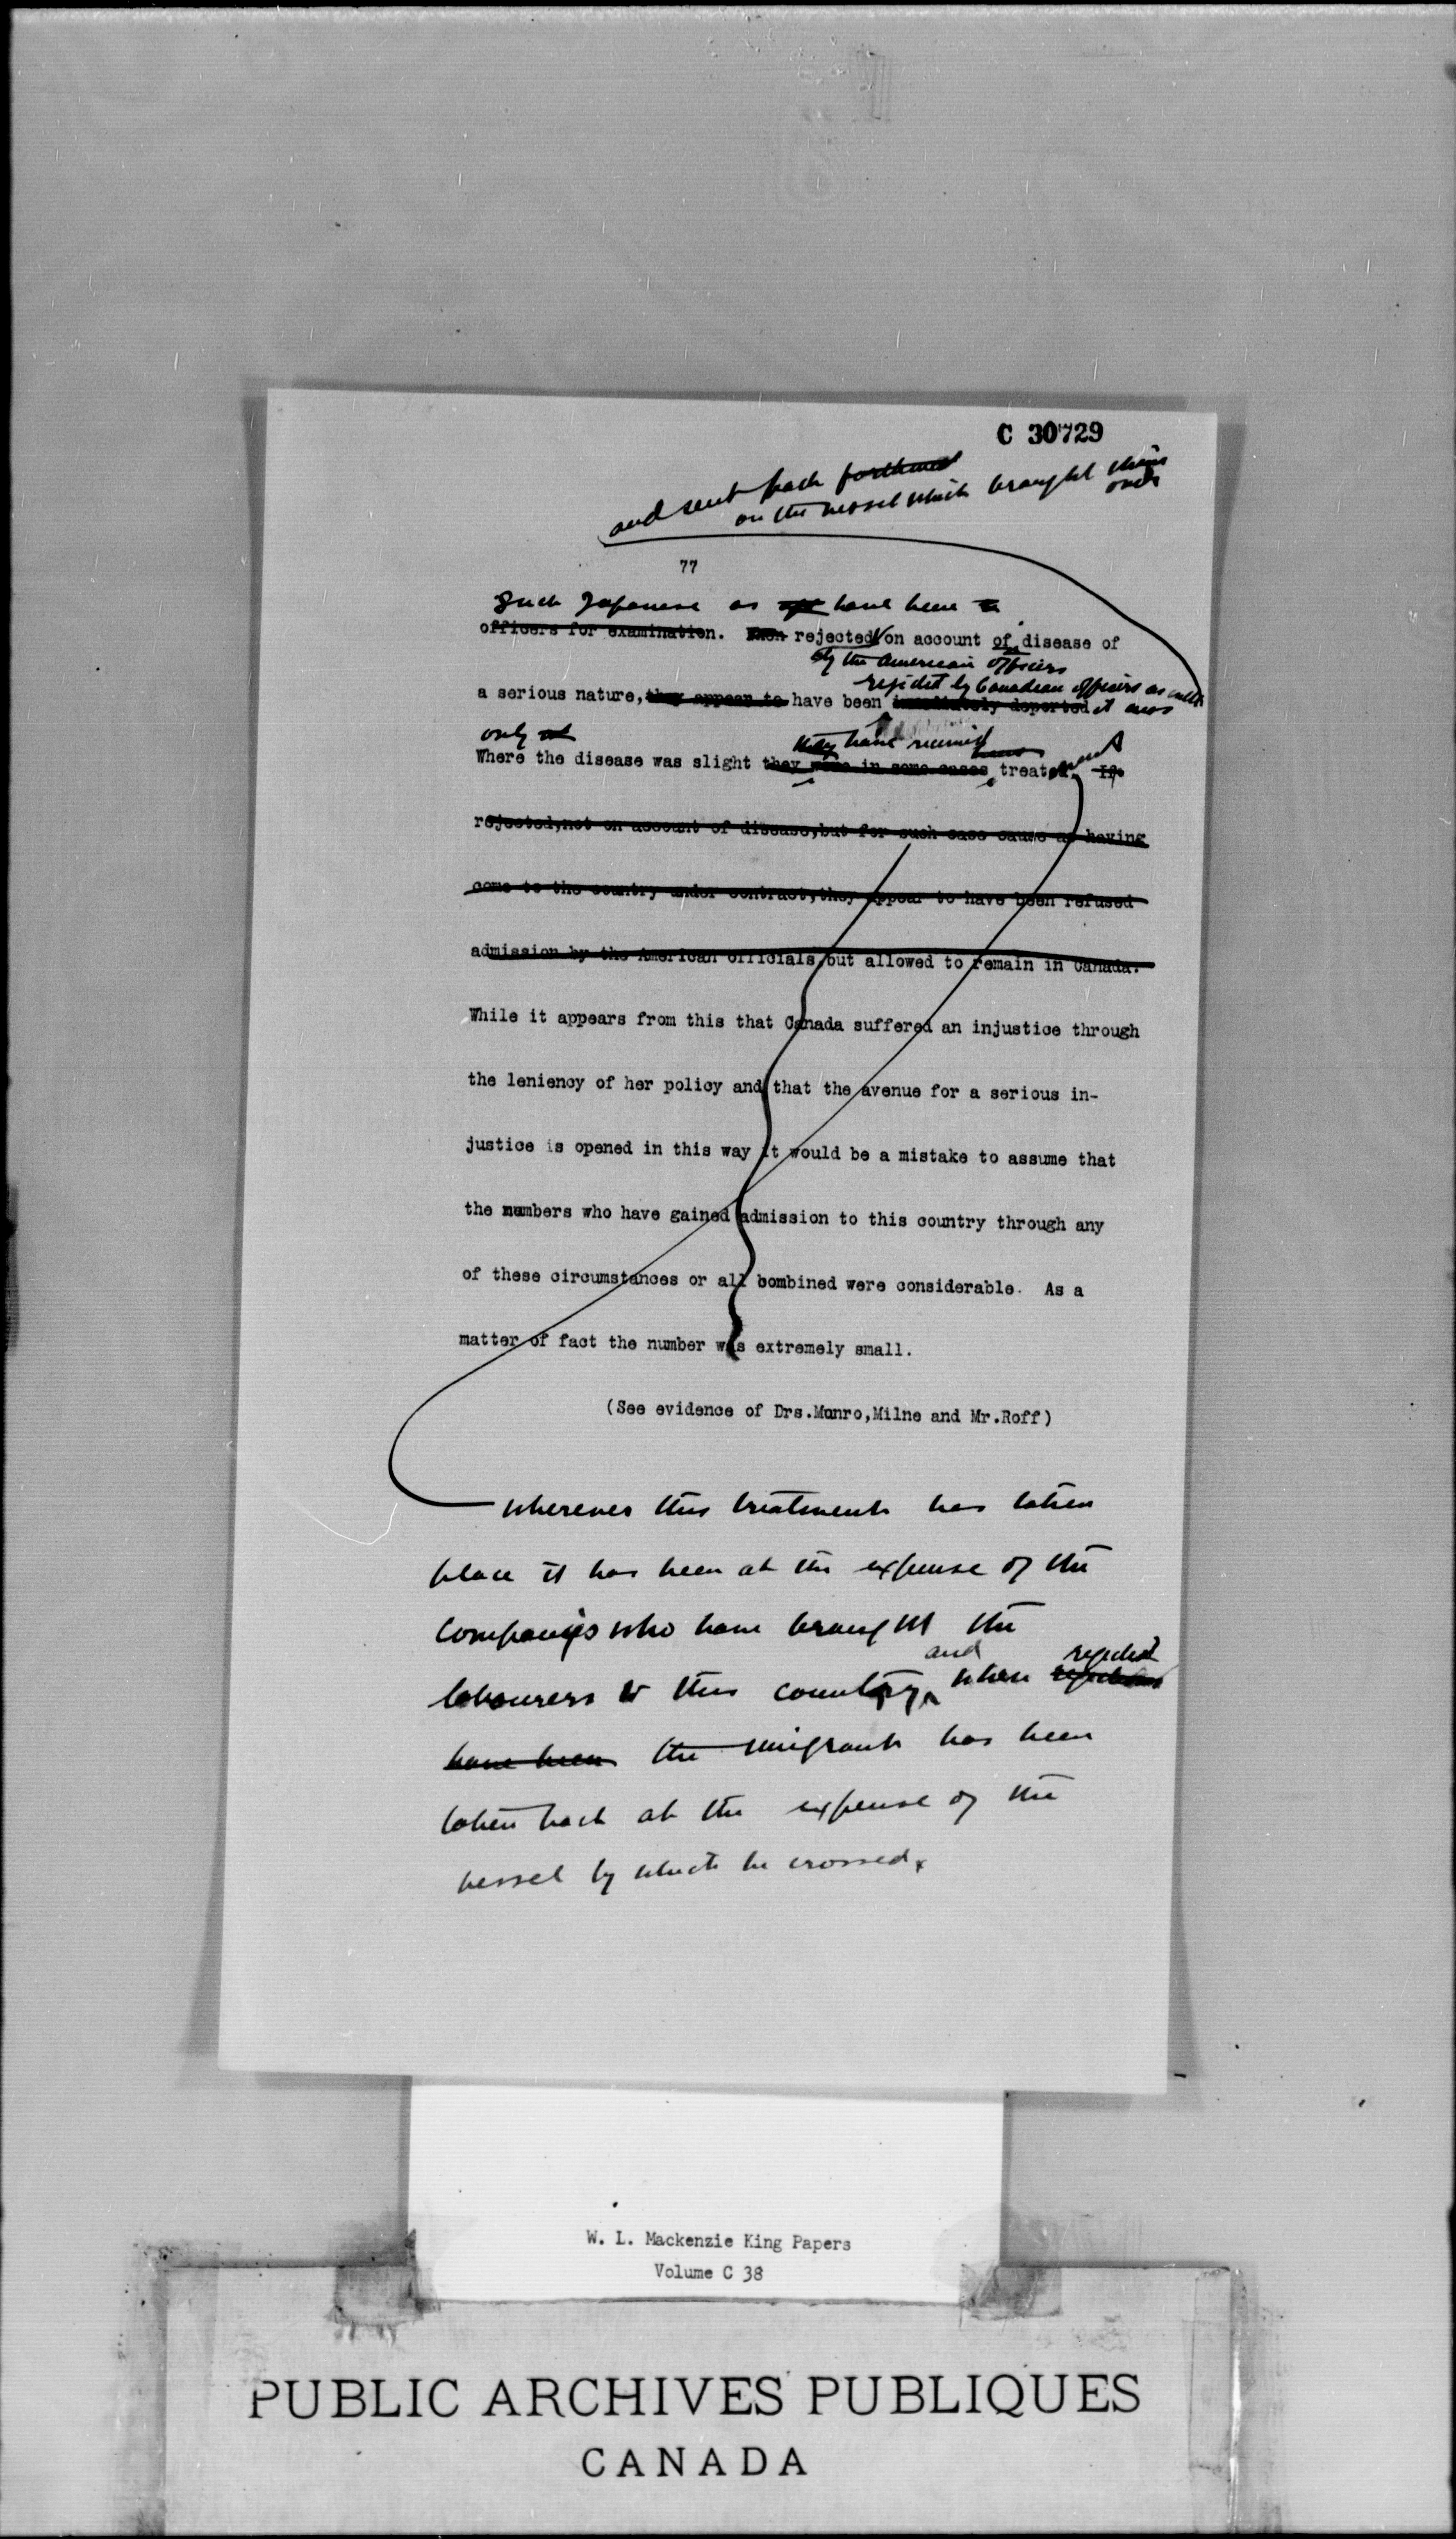 C 30729
and sent back forthwith
on the vessel which brought them
over
77
Such Japanese as have been
officers for examination. When rejected on account of disease of
by the American officers
rejected by Canadian officers as well
a serious nature, they appear to have been immediately deported
only
they have received
Where the disease was slight they were in some cases treatment If
rejected,not on account of disease,but for such case cause as having
come to the country under contract,they appear to have been refused
admission by the American officials,but allowed to remain in Canada.
While it appears from this that Canada suffered an injustice through
the leniency of her policy and that the avenue for a serious in-
justice is opened in this way it would be a mistake to assume that
the numbers who have gained admission to this country through any
of these circumstances or all combined were considerable. As a
matter of fact the number was extremely small.
(See evidence of Drs.Munro,Milne and Mr.Roff)
Wherever this treatment has taken
place it has been at the expense of the
companies who have brought the
and rejected
labourers to this country, when
have been the immigrant has been
taken back at the expense of the
vessel by which he crossed.
W. L. Mackenzie King Papers
Volume C 38
PUBLIC ARCHIVES PUBLIQUES
CANADA